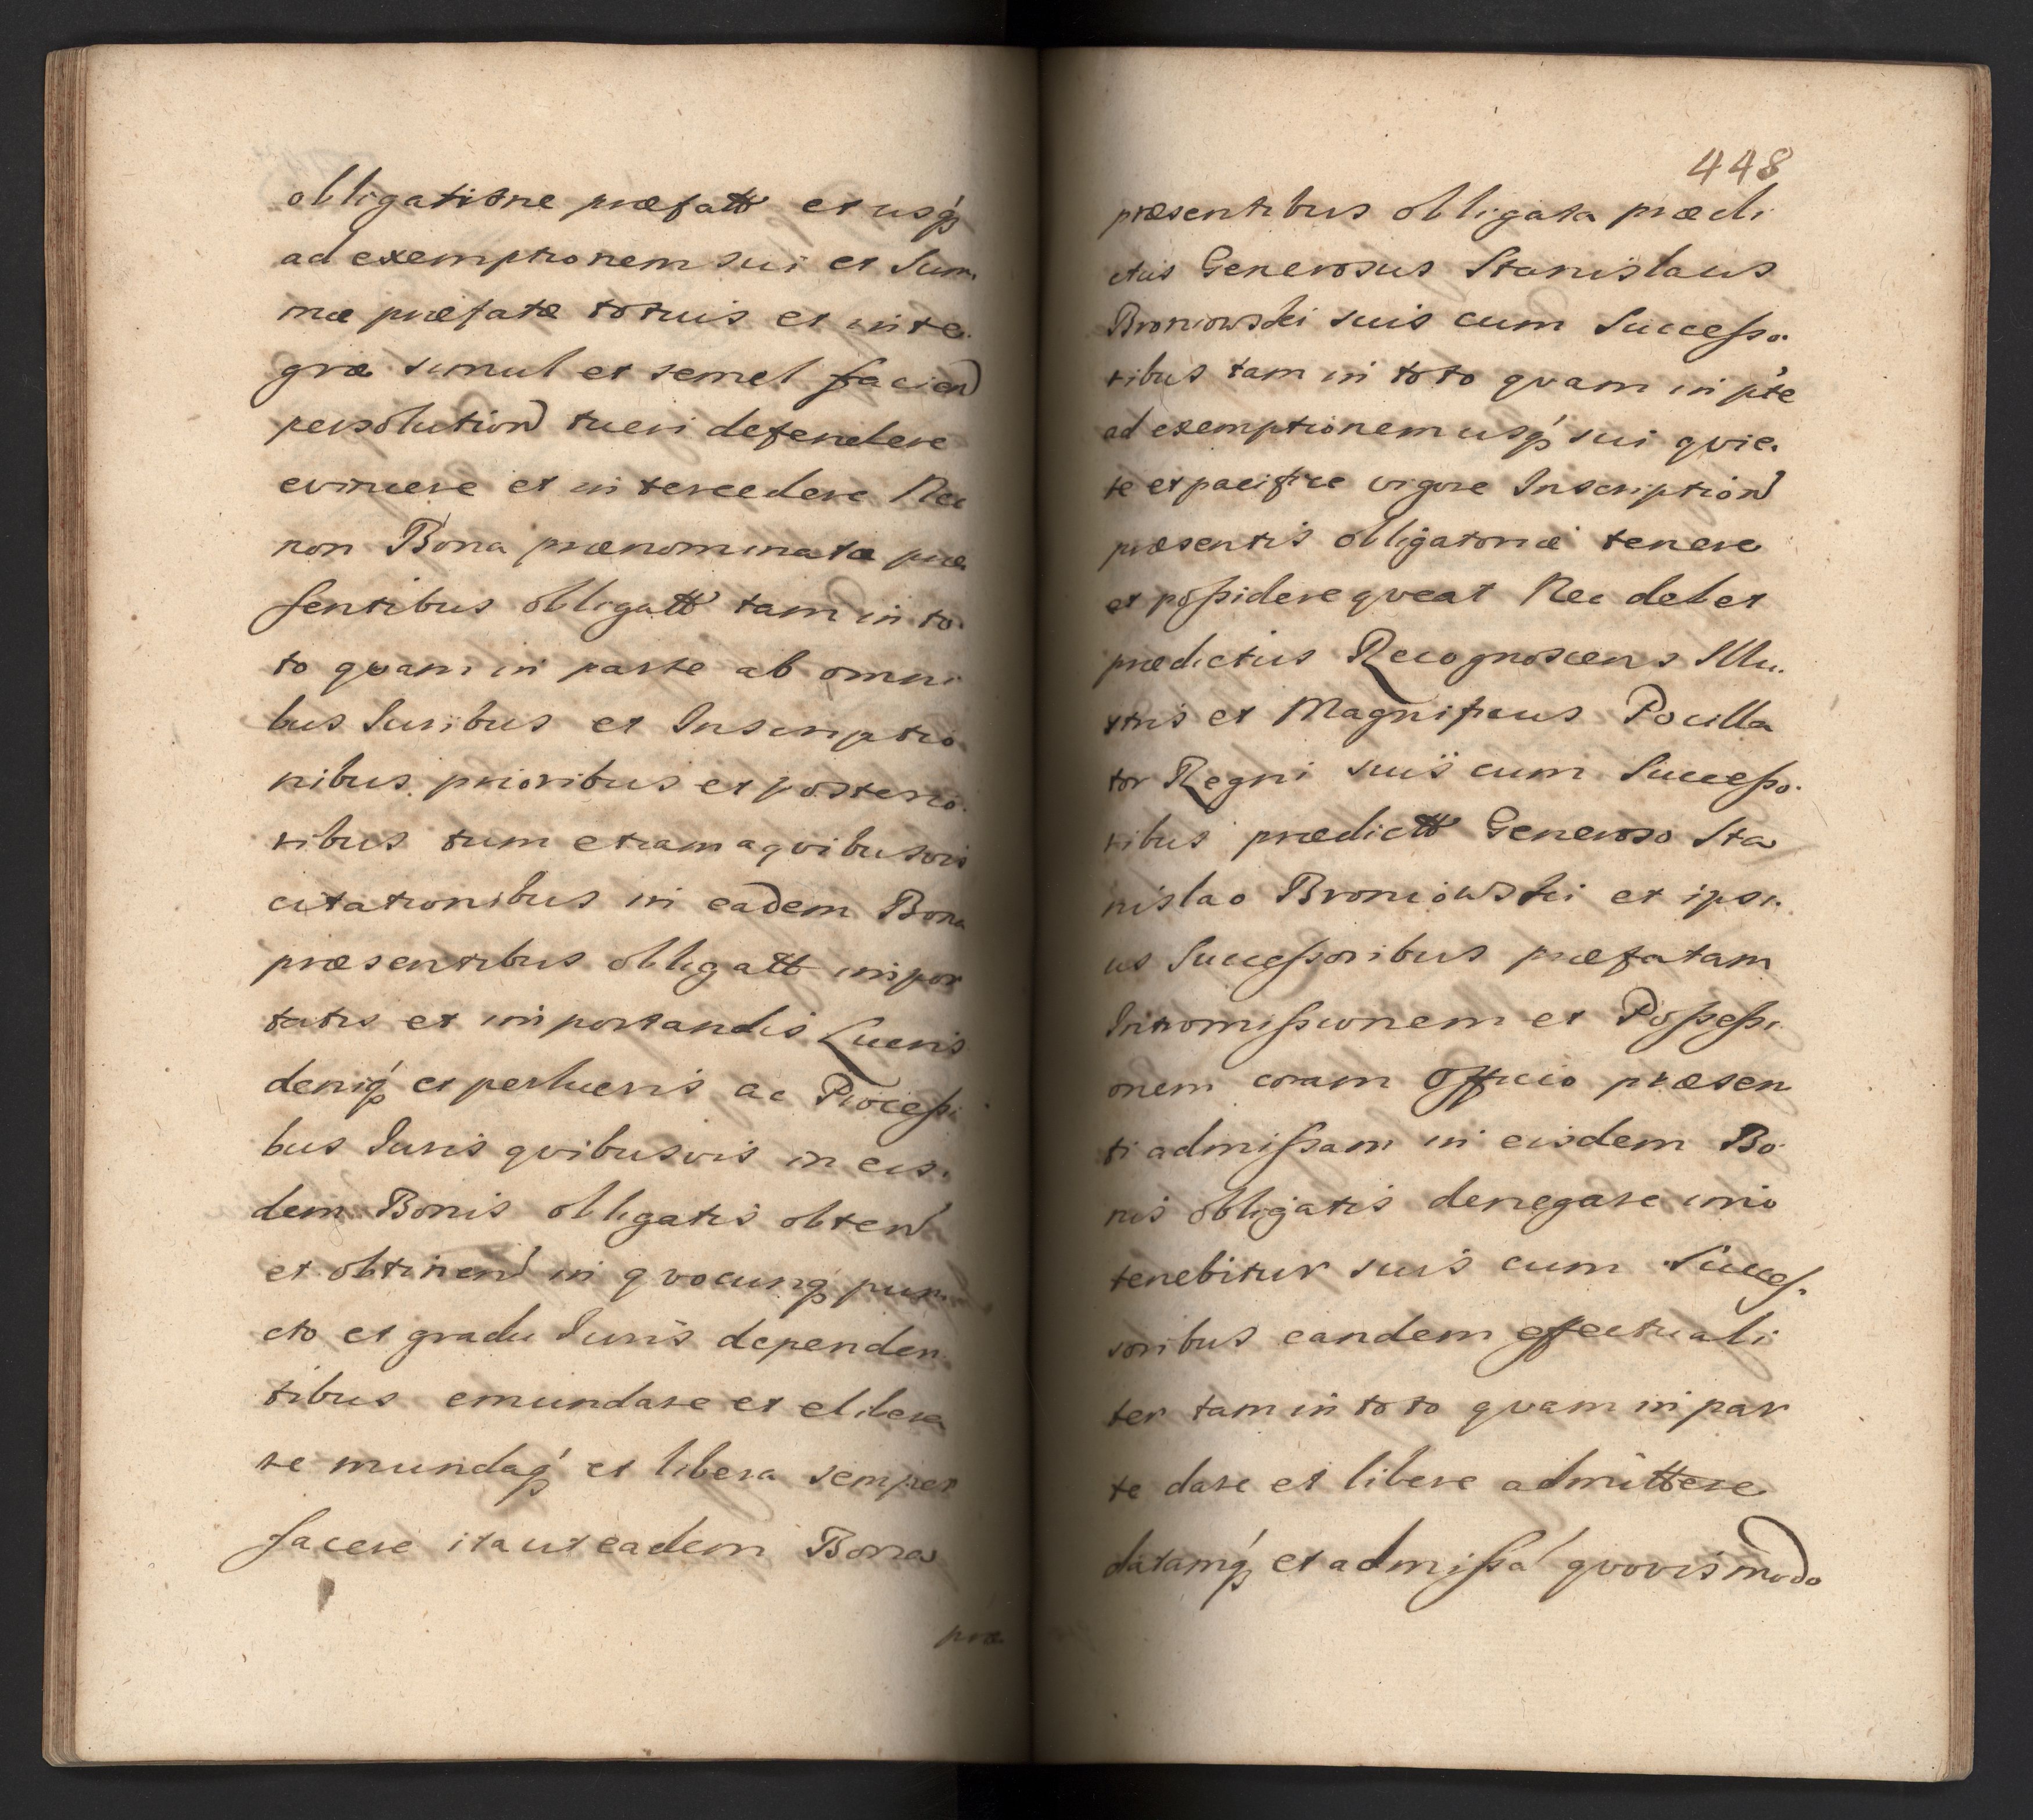 obligatione præfatt et usq́
ad exemptionem sui et Sum.
mæ præfatæ totius et inte.
græ simul et semel faciend
persolution tueri defendere
evincere et intercedere Nec
non Bona prænominata præ
sentibus obligatt tam in to.
to qvam in parte ab omni
bus Iuribus et Inscriptio
nibus prioribus et posterio.
ribus tum etiam a qvibusvis
citationibus in eadem Bona
præsentibus obligatt impor
tatis et importandis Lucris
deniq́ et perlucris ac Processi
bus Iuris qvibusvis in eis.
dem Bonis obligatis obtent
et obtinend in qvocunq́ pun
cto et gradu Iuris dependen
tibus emundare et elibera
re mundaq́ et libera semper
facere ita ut eadem Bona
præ
448
præsentibus obligata prædi
ctus Generosus Stanislaus
Broniowski suis cum Successo.
ribus tam in toto qvam in pte
ad exemptionem usq́ sui qvie.
te et pacifice vigore Inscription
præsentis obligatoriæ tenere
et possidere qveat Nec debet
prædictus Recognoscens Illu.
stris et Magnificus Pocilla
tor Regni suis cum Successo.
ribus prædictt Generoso Sta
nislao Broniowski et ipsi.
us Successoribus præfatam
Intromissionem et Possessi
onem coram Officio præsen
ti admissam in eisdem Bo
nis obligatis denegare imo
tenebitur suis cum Succes.
soribus eandem effectuali
ter tam in toto qvam in par
te dare et libere admittere
datamq́ et admissa qvovis modo